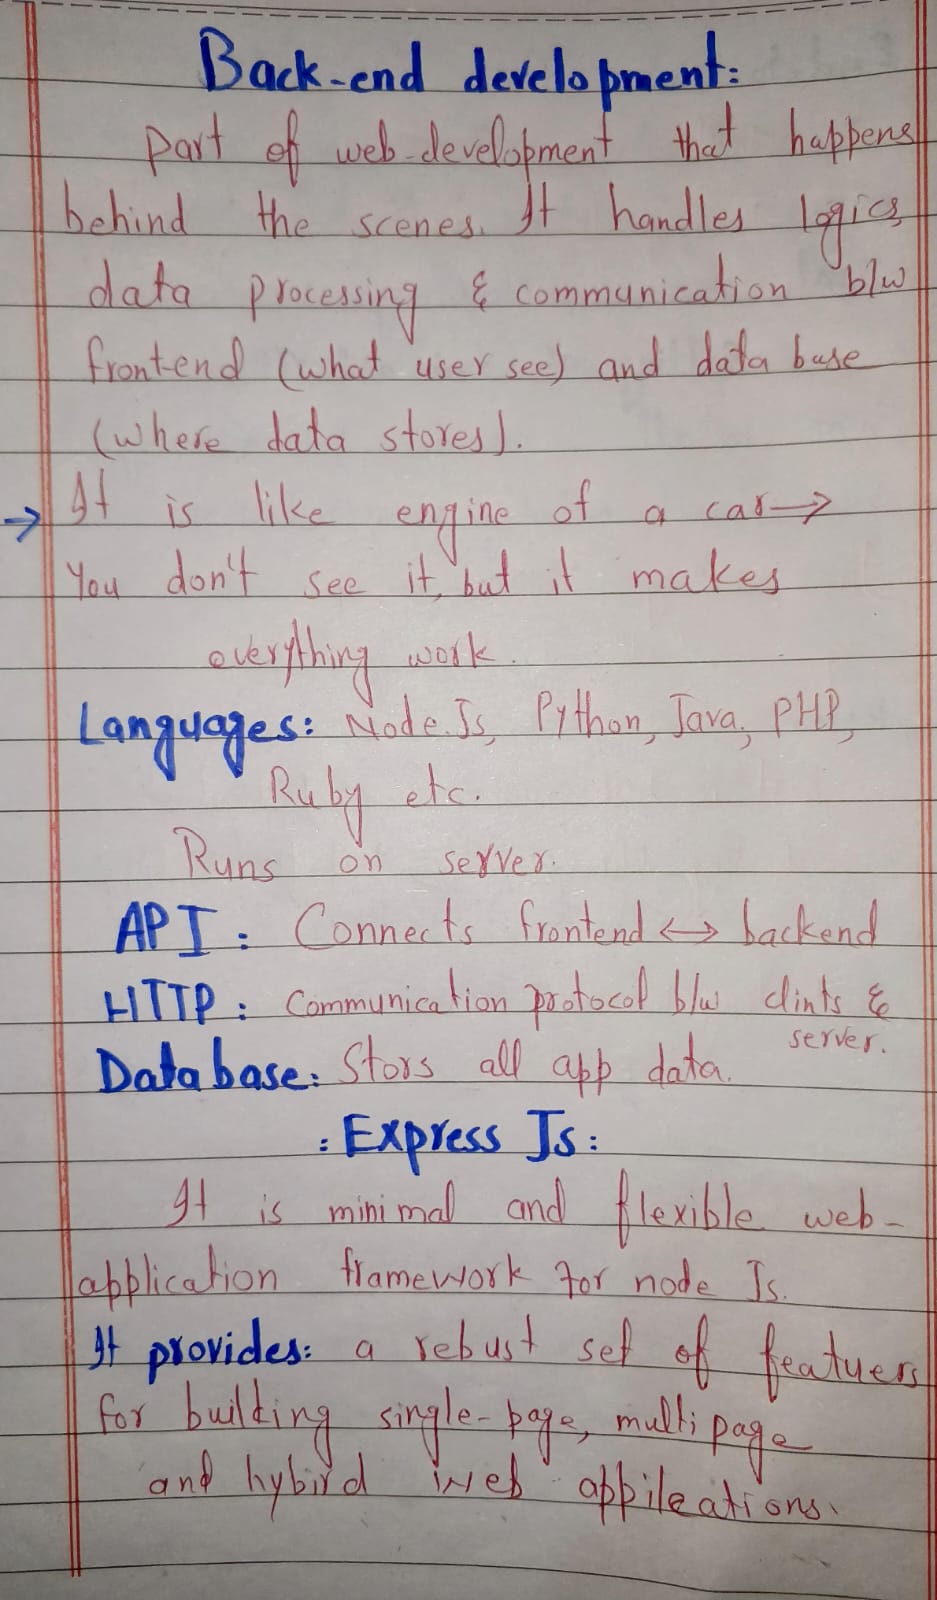 Back-end development:
Part of web-development that happens
behind the scenes. It handles logics
data processing & communication b/w
frontend (what user see) and data base
(where data stores).
→ It is like engine of a car →
You don't see it, but it makes
everything work.
Languages: Node.Js, Python, Java, PHP,
Ruby etc.
Runs on server.
API: Connects frontend ↔ backend
HTTP: Communication protocol b/w clints &
server.
Database: Stors all app data.
: Express Js:
It is minimal and flexible web-
application framework for node Js.
It provides: a rebust set of featuers
for building single-page, multi page
and hybird web appileations.